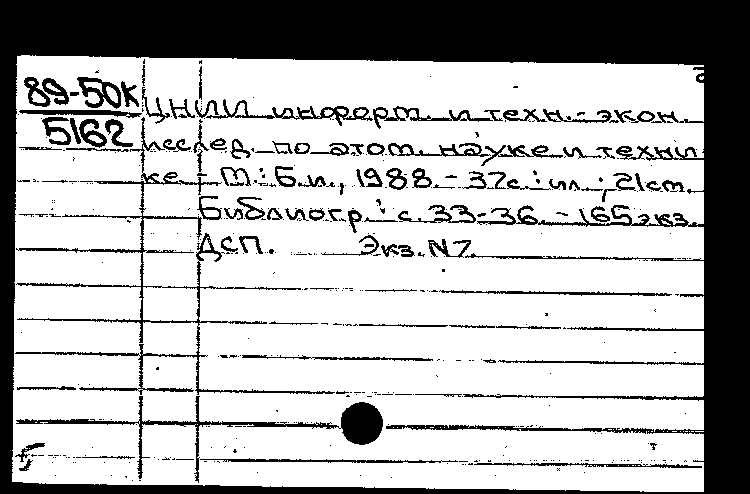 89-50к
5162
ЦНИИ информ. и техн.- экон.
исслед. по атом. науке и техни
ке. - М.: Б.и., 1988. - 37с. : ил ; 21см.
Библиогр.: с. 33-36. - 165экз.
ДСП. Экз. N7.